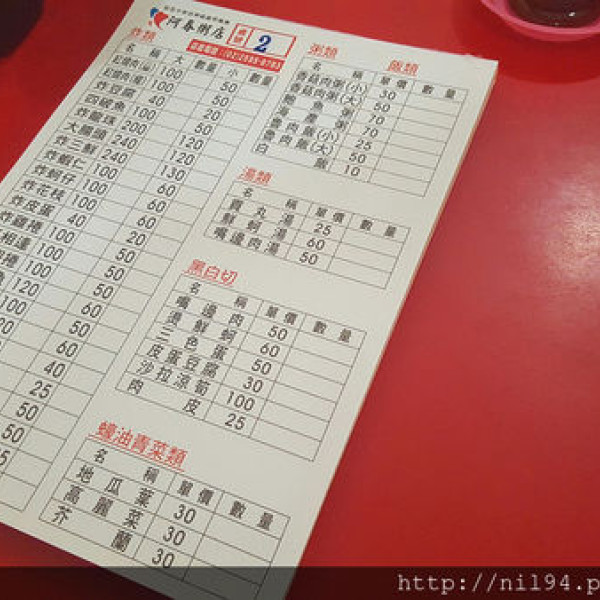 阿春粥店
桌號 2
炸類
名 稱 大 數量 小 數量
紅燒肉(瘦) 100 50
紅燒肉(肥) 100 50
炸豆腐 40 20
四破魚 100 50
炸龍珠 200 120
大腸頭 240 120
炸三鮮 240 130
炸蝦仁 100 60
炸蚵仔 100 60
炸花枝 100 60
炸皮蛋 40 20
炸雞捲 100 50
相逢 100 50
捲 100 50
120 60
100 50
120 60
40
25
50
50
粥類 飯類
名 稱 單價 數量
香菇肉粥(小) 30
香菇肉粥(大) 60
魚 粥 70
海 產 粥 70
魯肉飯(小) 25
魯肉飯(大) 50
白 飯 10
湯類
名 稱 單價 數量
貢丸湯 25
鮮蚵湯 60
嘴邊肉湯 50
黑白切
名 稱 單價 數量
嘴邊肉 50
燙鮮蚵 60
三色蛋 50
皮蛋豆腐 30
沙拉涼筍 100
肉 皮 25
蠔油青菜類
名 稱 單價 數量
地瓜葉 30
高麗菜 30
芥 蘭 30
http://nil94.p